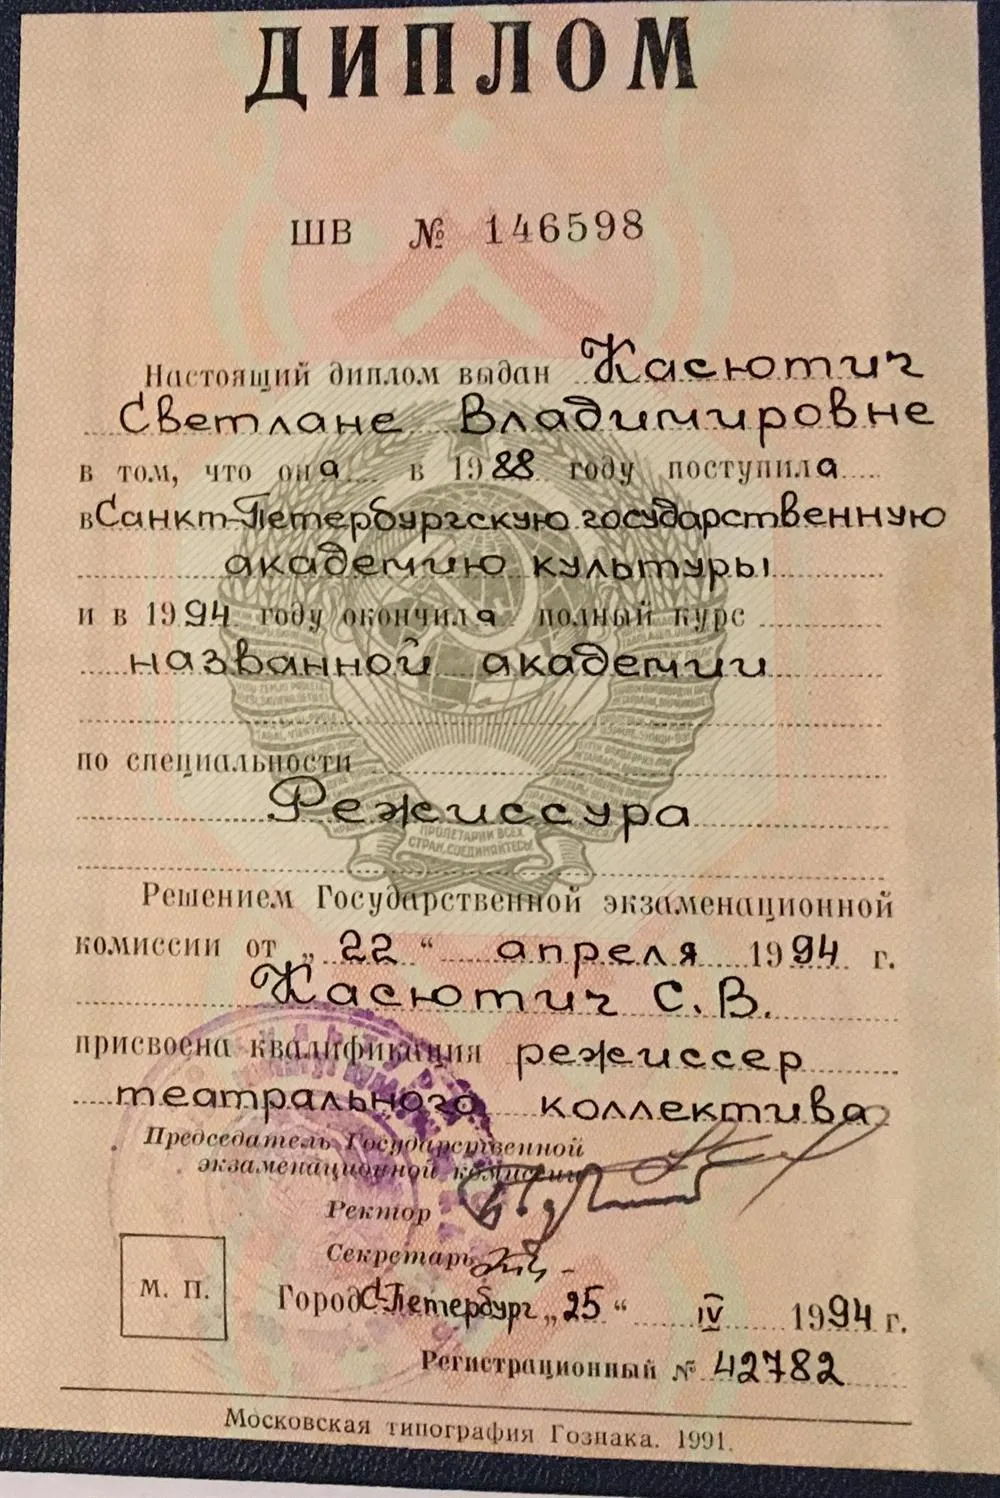 ДИПЛОМ
ШВ № 146598
Настоящий диплом выдан Касютич
Светлане Владимировне
в том, что она в 1988 году поступила
в Санкт-Петербургскую государственную
академию культуры
и в 1994 году окончила полный курс
названной академии
по специальности
Режиссура
ПРОЛЕТАРИИ ВСЕХ
СТРАН, СОЕДИНЯЙТЕСЬ!
Решением Государственной экзаменационной
комиссии от „22“ апреля 1994 г.
Касютич С.В.
присвоена квалификация режиссер
театрального коллектива
Председатель Государственной
экзаменационной комиссии
Ректор
Секретарь
М. П.
Город С-Петербург „25“ IV 1994 г.
Регистрационный № 42782
Московская типография Гознака. 1991.